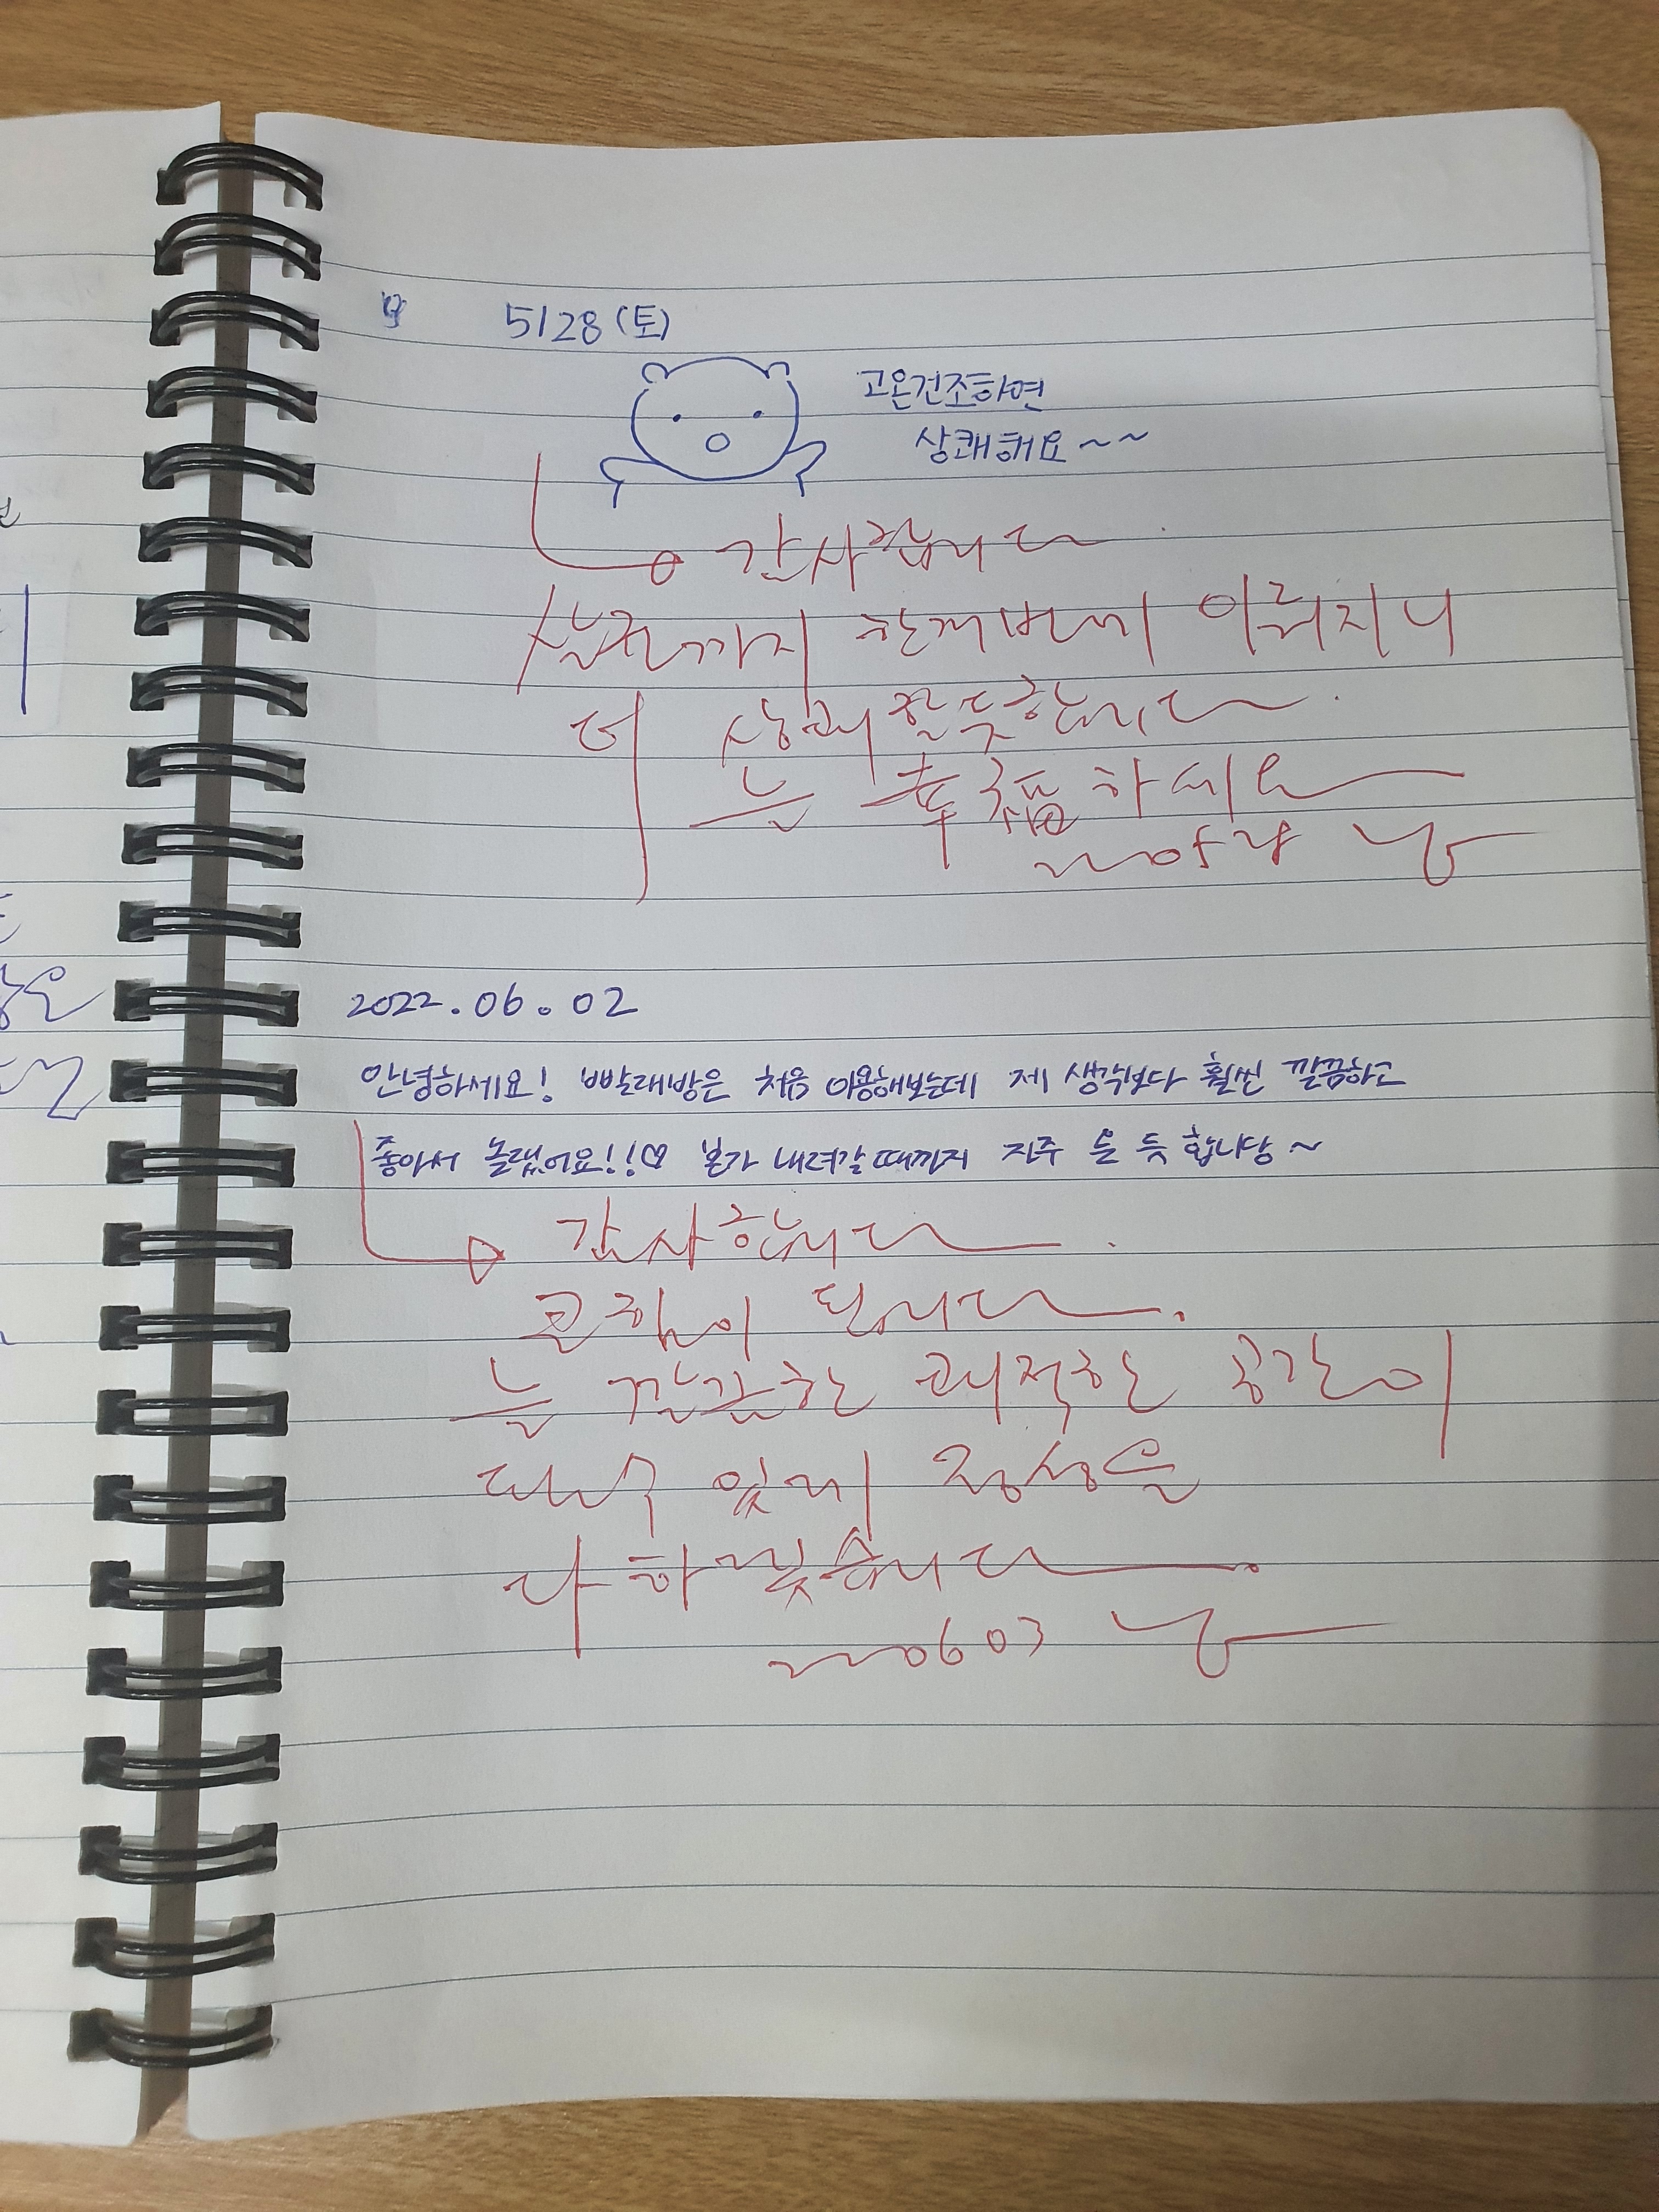 5/28 (토)
고온건조하면
상쾌해요~~
감사합니다.
살균까지 한꺼번에 이뤄지니
더 상쾌할듯합니다.
늘 幸福하세요
2022.06.02
안녕하세요! 빨래방은 처음 이용해보는데 제 생각보다 훨씬 깔끔하고
좋아서 놀랬어요!!♡ 본가 내려갈때까지 자주 올 듯 합니당~
감사합니다.
큰힘이 됩니다.
늘 깔끔하고 쾌적한 공간이
될수 있게 정성을
다하겠습니다.
220603